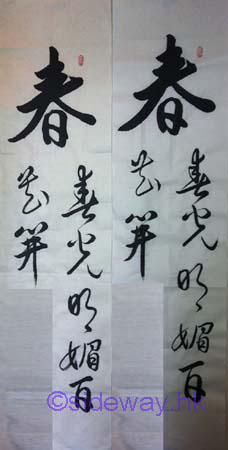 春
春光明媚百
花開
春
春光明媚百
花開
©sideway.hk